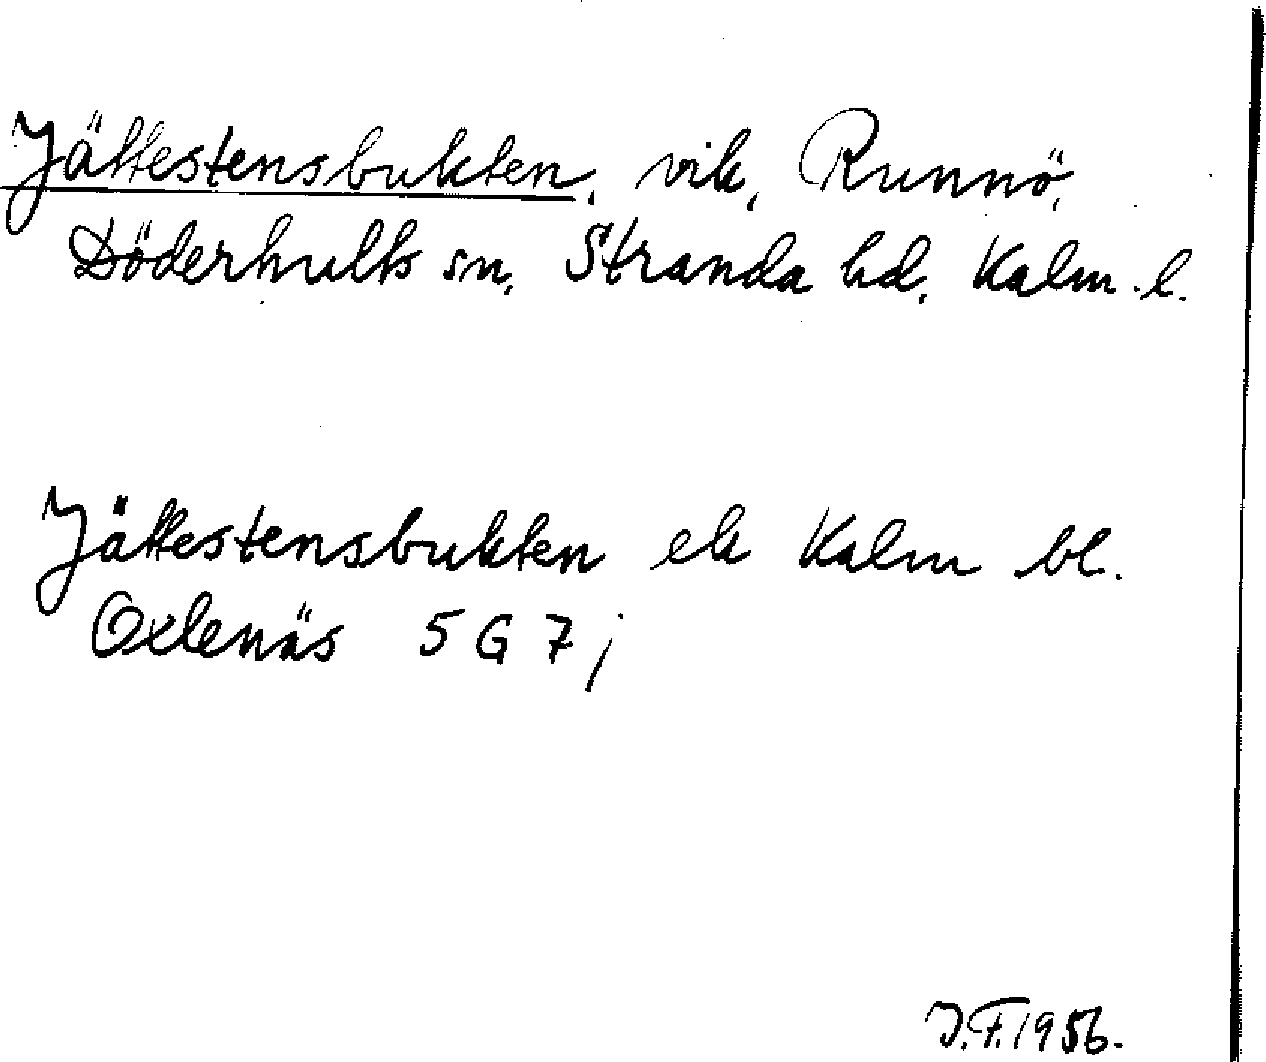 Jättestensbukten, vik, Runnö,
Döderhults sn, Stranda hd, Kalm. l.
Jättestensbukten ek Kalm bl.
Oxlenäs 5 G 7 j
J.F. 1956.